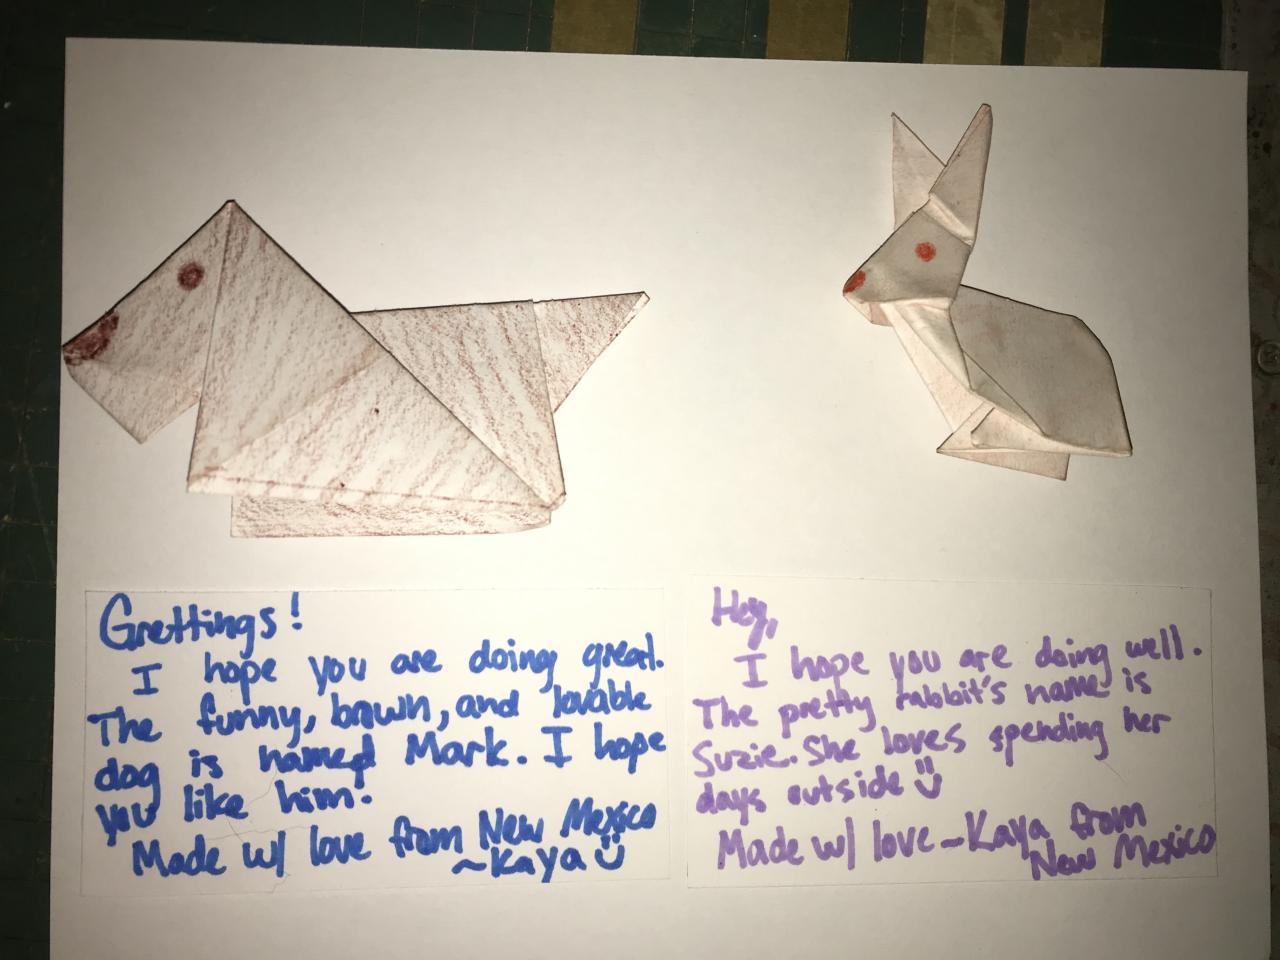 Grettings!
I hope you are doing great.
The funny, brown, and lovable
dog is named Mark. I hope
you like him!
Made w/ love from New Mexico
~Kaya
Hey,
I hope you are doing well.
The pretty rabbit's name is
Suzie. She loves spending her
days outside
Made w/ love ~Kaya from
New Mexico